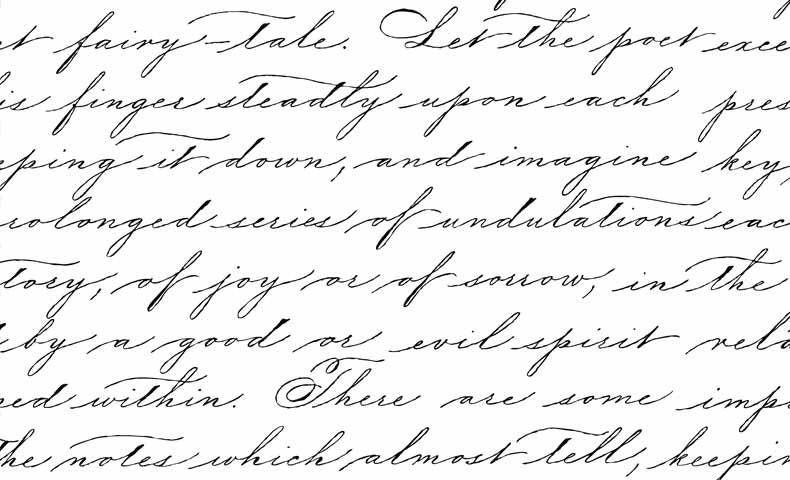 et fairy-tale. Let the poet exce
is finger steadty upon each pres
eping it down, and imagine key,
rolonged series of undulations eac
tory, of joy or of sorrow, in the
by a good or evil spirit rela
ped within. There are some imp
the notes which almost tell, keepin